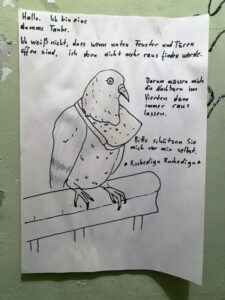 Hallo. Ich bin eine
dumme Taube.
Ich weiß nicht, dass wenn unten Fenster und Türen
offen sind, ich oben nicht mehr raus finden werde.
Darum müssen mich
die Nachbarn im
Vierten dann
immer raus
lassen.
Bitte schützen Sie
mich vor mir selbst.
* Ruckedigu Ruckedigu *